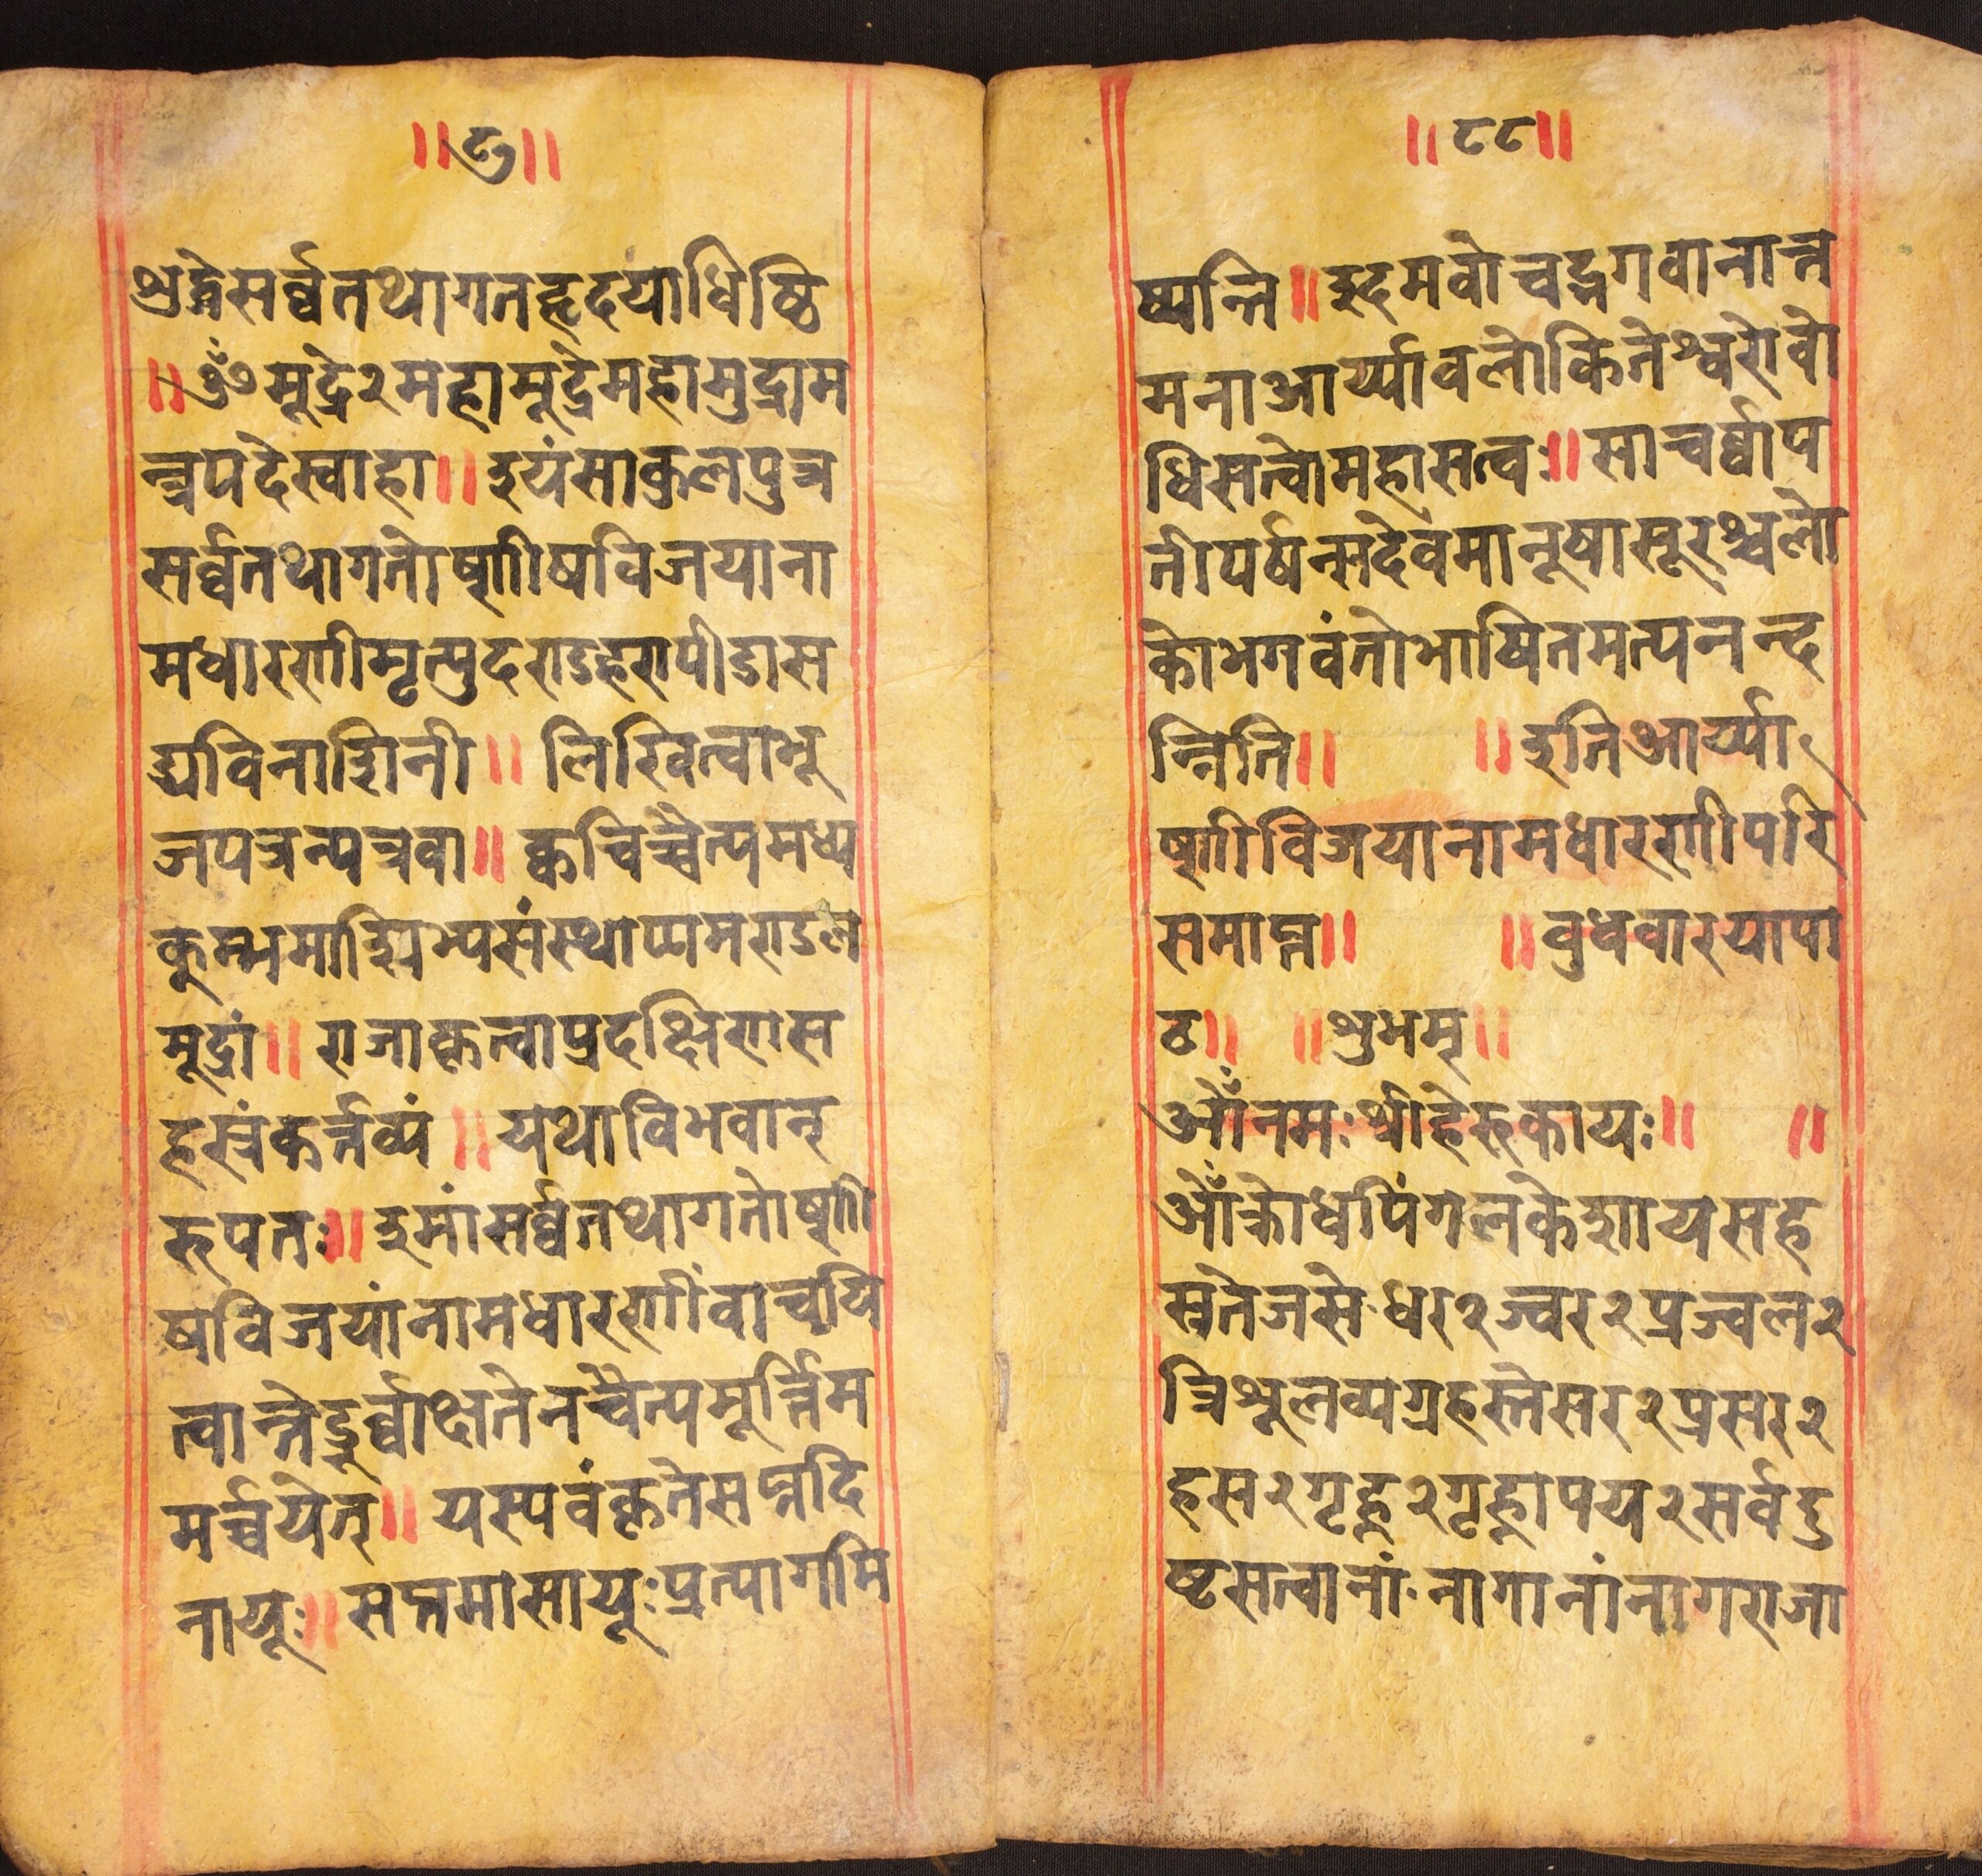 ॥ ८७ ॥
शुद्धेसर्व्वतथागतहृदयाधिष्ठि
॥ ॐ मूद्रे२महामूद्रेमहामुद्राम
न्त्रपदेस्वाहा ॥ इयंसाकुलपुत्र
सर्व्वतथागतोष्णीषविजयाना
मधारणीमृत्युदण्डहरापीडास
द्यविनाशिनी ॥ लिखित्वाभू
जपत्रन्यत्रवा ॥ क्वचिच्चैत्यमध्य
कुम्भमा संस्थाप्यमण्डल
मूद्रां ॥ राजाकृत्वाप्रदक्षिणास
हस्त्रंकर्त्तव्यं ॥ यथाविभवान्
रूपतः ॥ इमांसर्व्वतथागतोष्णी
षविजयांनामधारणींवाचयि
त्वान्तेद्दुर्व्वाक्षतेनचैत्यमूर्त्तिम
मर्च्चयेत् ॥ यस्यवंकृतेसप्तदि
नायूः ॥ सप्तमासायूःप्रत्यागमि
॥ ८८ ॥
ष्यन्ति ॥ इदमवोचद्भगवानात्त
मनाआर्य्यावलोकितेश्वरोवो
धिसत्वोमहासत्वः ॥ साचर्व्वाप
तीपर्षन्सदेवमानूषासूरश्चलो
कोभगवंतोभाषितमत्यनन्द
न्निति ॥ ॥ इतिआर्य्या
ष्णीविजयानामधारणीपरि
समाप्त ॥ ॥ वुधवारयापा
ठ ॥ ॥ शुभम् ॥
ओँनमःश्रीहेरूकायः ॥ ॥
ओँक्रोधपिंगलकेशायसह
स्रतेजसेधर२ज्वर२प्रज्वल२
त्रिशूलव्यग्रहस्तेसर२प्रसर२
हस२गृह्ण२गृह्णापय२सर्वदु
ष्टसत्वानांनागानांनागराजा